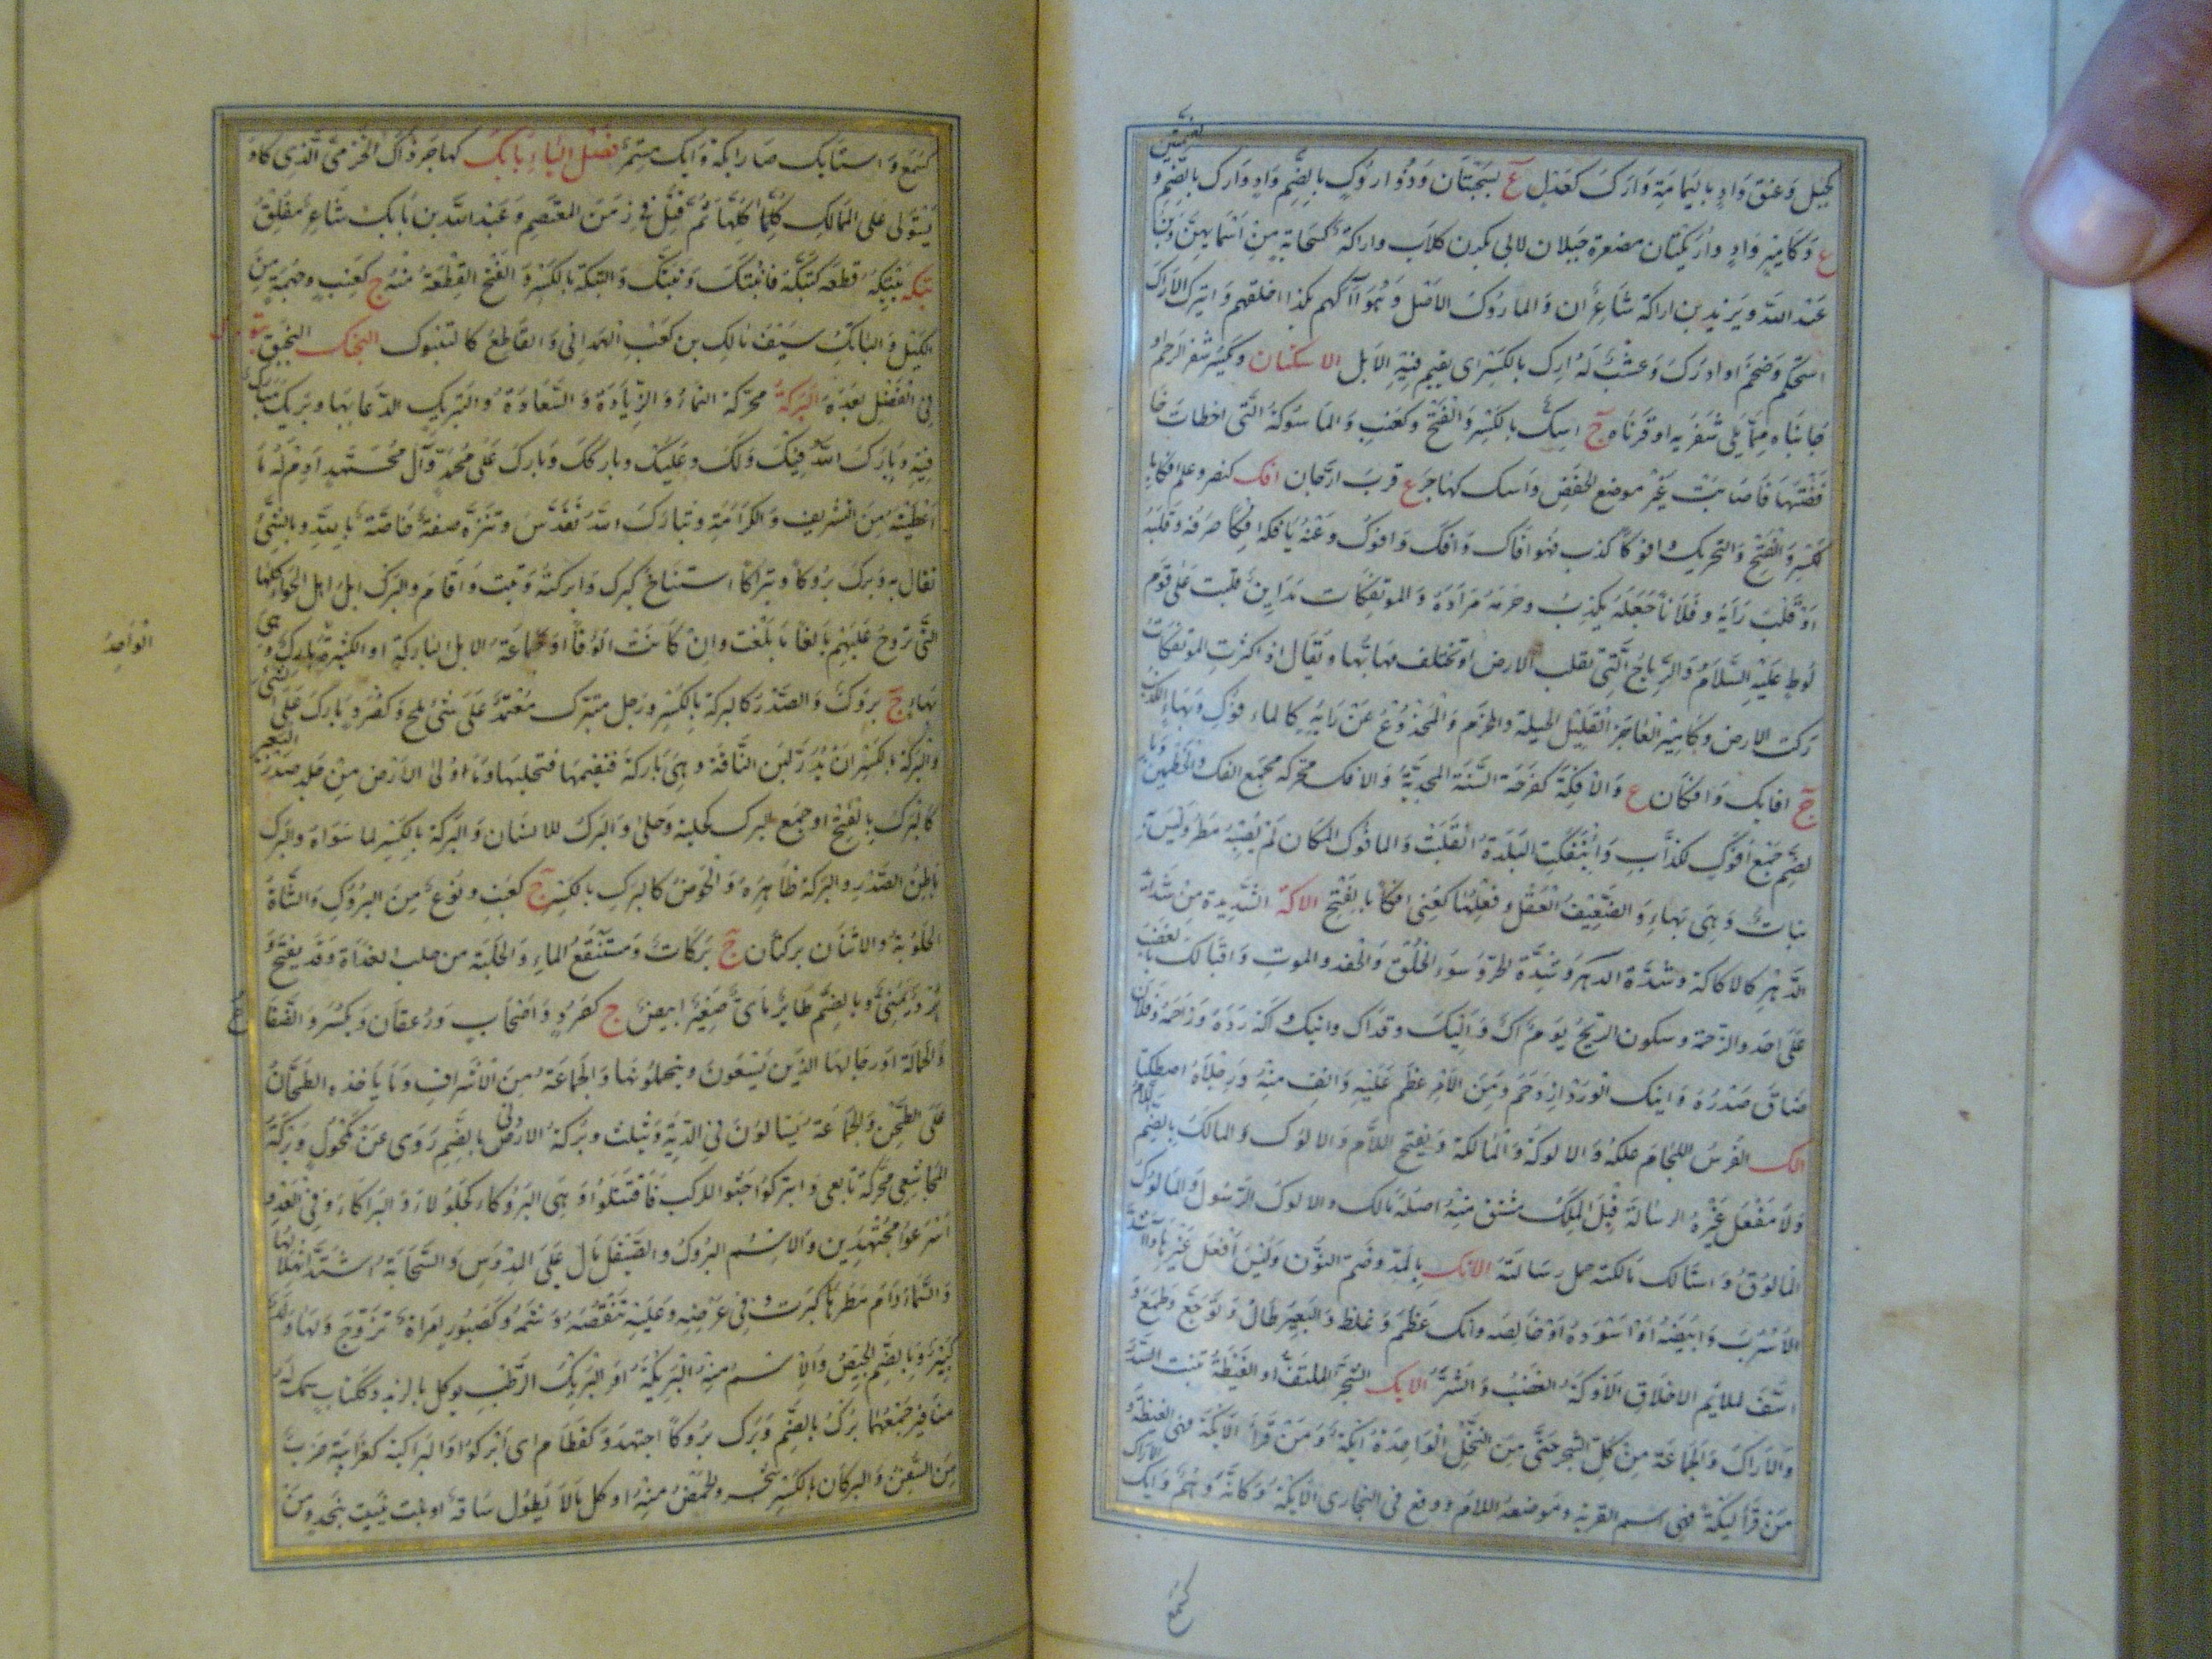 كجبل وعنق واد باليمامة وارك كعدل ع بسجستان وذو اروك بالضم واد وارك بالضم و
بضمتين
ع وكامير واد واريكتان مصغرة جبلان لابى بكر بن كلاب واراكة كسحابة من اسمايهن وبنا
عبد الله ويزيد بن اراكة شاعران والماروك الاصل وهو آركهم بكذا اخلقهم وايترك الاراك
استحكم وضخم او ادرك وعشب له ارك بالكسر اى يقيم فيه الابل الاسكتان ويكسر شفر الرحم او
جانباه مما يلى شفريه او قرناه ج اسك بالكسر والفتح وكعنب والماسوكة التى اخطات خا
فضتها فاصابت غير موضع الخفض واسك كهاجر ع قرب ارجان افك كضرب وعلم افكا با
لكسر والفتح والتحريك وافوكا كذب فهو افاك وافك وافوك وعنه يافكه افكا صرفه وقلبه
او قلب رايه وفلانا جعله يكذب وحرمه مراده والموتفكات مداين قلبت على قوم
لوط عليه السلام والرياح التى تقلب الارض او تختلف مهابها ويقال اذا كثرت الموتفكات
زكت الارض وكامير العاجز القليل الحيلة والحزم والمخدوع عن رايه كالمافوك وبهاء الكذب
ج افايك وافكان ع والافكة كفرحة السنة المجدبة والافك محركة مجمع الفك والخطمين وبا
لضم جمع افوك لكذاب وايتفكت البلدة انقلبت والمافوك المكان لم يصبه مطر وليس به
نبات وهى بهاء والضعيف العقل وفعلهما كعنى افكا بالفتح الاكة الشديدة من شدائد
الدهر كالاكاكة وشدة الدهر وشدة الحر وسوء الخلق والحقد والموت واقبالك بالغضب
على احد والزحمة وسكون الريح يوم اك واكيك وقد اك وايتك واكه رده وزاحمه وفلان
ضاق صدره وايتك الورد ازدحم ومن الامر عظم عليه وانف منه ورجلاه اصطكتا
الك الفرس اللجام علكه والالوكة والمالكة ويفتح اللام والالوك والمالك بضم اللام
ولا مفعل غيره الرسالة قيل الملك مشتق منه اصله مالك والالوك الرسول والمالوك
المالوق واستالك مالكته حمل رسالته الانك بالمد وضم النون وليس افعل غيرها واشد
الاسرب وابيضه او اسوده او خالصه وانك عظم وغلظ والبعير طال وتوجع وطمع و
اسف لملايم الاخلاق الاوكة الغضب والشر الايك الشجر الملتف او الغيضة تنبت السدر
والاراك والجماعة من كل الشجر حتى من النخل الواحدة ايكة ومن قرا الايكة فهى الغيضة و
من قرا ليكة فهى اسم القرية وموضعه اللام ووقع فى البخارى الايكة وكانه وهم وايك الاراك
كسمع
كسمع واستايك صار ايكة وايك مثمر فصل الباء بابك كهاجر ذاك الخرمى الذى كاد
يستولى على الممالك كلها ثم قتل فى زمن المعتصم وعبد الله بن بابك شاعر مفلق
بتكه يبتكه قطعه كبتكه فانبتك وتبتك والبتكة بالكسر والفتح القطعة منه ج كعنب وجهمة من
الليل والباتك سيف مالك بن كعب الهمدانى والقاطع كالبتوك البخنك البخنق
فى الفصل بعده البركة محركة النماء والزيادة والسعادة والتبريك الدعا بها وبريك مبارك
فيه وبارك الله فيك ولك وعليك وباركك وبارك على محمد وآل محمد ادم له ما
اعطيته من التشريف والكرامة وتبارك الله تقدس وتنزه صفة خاصة بالله وبالشى
تفال به وبرك بروكا وتبراكا استناخ كبرك وابركته وثبت واقام والبرك ابل اهل الحواء كلها
التى تروح عليهم بالغا ما بلغت وان كانت الوفا او جماعة الابل الباركة او الكثيرة
الواحد
بهاء ج بروك والصدر كالبركة بالكسر ورجل مبترك معتمد على شى ملح وكصرد بارك على الشى
والبركة بالكسر ان يدر لبن الناقة وهى باركة فيقيمها فيحلبها وما ولى الارض من جلد صدر البعير
كالبرك بالفتح او جمع البرك كحلية وحلى والبرك للانسان والبركة بالكسر لما سواه والبرك
باطن الصدر والبركة ظاهره والحوض كالبرك بالكسر ج كعنب ونوع من البروك والشاة
الحلوبة والاثنان بركتان ج بركات ومستنقع الماء والحلبة من حلب الغداة وقد يفتح و
برد يمنى وبالضم طاير مائى صغير ابيض ج كصرد واصحاب ورغفان ويكسر والضفا
والحمالة او رجالها الذين يسعون ويحملونها والجماعة من الاشراف وما ياخذه الطحان
على الطحن والجماعة يسالون فى الدية ويثلث وبركة الاردنى بالضم روى عن مكحول وبركة
المجاشعى محركة تابعى وابتركوا جثوا للركب فاقتتلوا وهى البروكاء كجلولاء والبراكاء وفى العدو
اسرعوا مجتهدين والاسم البروك والصيقل مال على المدوس والسحابة اشتد انهلالها
والسماء دام مطرها كبركت وفى عرضه وعليه تنقصه وشتمه وكصبور امراة تزوج ولها ولد
كبير وبالضم الخبيص والاسم منه البريكة او البريك الرطب يوكل بالزبد وككتاب سمك له
مناقير جمعهما برك بالضم وبرك بروكا اجتهد وكقطام اى ابركوا والبراكية كغرابية ضرب
من السفن والبركان بالكسر شجر والحمض منه او كل ما لا يطول ساقه او نبت ينبت بنجد ومن